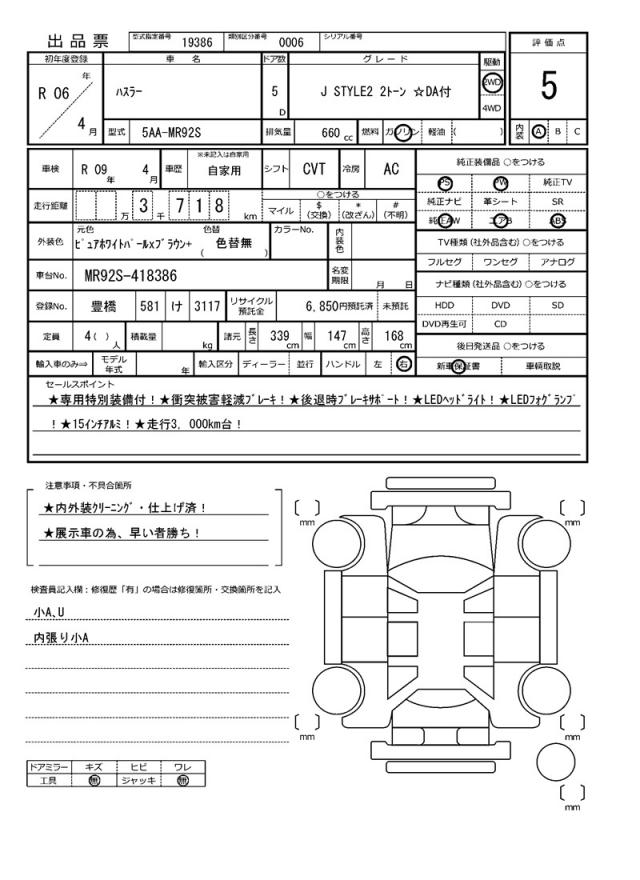 出品票 型式指定番号 19386 類別区分番号 0006 シリアル番号
初年度登録 車名 ドア数 グレード 駆動 評価点
R 06 年 4 月 ハスラー 5 D J STYLE2 2トーン ☆DA付 2WD 4WD 5
型式 5AA-MR92S 排気量 660 cc 燃料 ガソリン 軽油 ( ) 内装 A B C
車検 R 09 年 4 月 車歴 ※未記入は自家用 自家用 シフト CVT 冷房 AC
純正装備品 ○をつける
PS PW 純正TV
純正ナビ 革シート SR
純正AW エアB ABS
走行距離 万 3 千 7 1 8 km ○をつける
マイル $ (交換) * (改ざん) # (不明)
外装色 元色 ピュアホワイトパールxブラウン+ 色替 ( 色替無 ) カラーNo. 内装色
TV種類 (社外品含む) ○をつける
フルセグ ワンセグ アナログ
車台No. MR92S-418386 名変期限 月 日
ナビ種類 (社外品含む) ○をつける
HDD DVD SD
DVD再生可 CD
登録No. 豊橋 581 け 3117 リサイクル預託金 6,850円預託済 未預託
定員 4 ( ) 人 積載量 kg 諸元 長さ 339 cm 幅 147 cm 高さ 168 cm
後日発送品 ○をつける
新車保証書 車輌取説
輸入車のみ⇒ モデル年式 年 輸入区分 ディーラー 並行 ハンドル 左 右
セールスポイント
★専用特別装備付！★衝突被害軽減ブレーキ！★後退時ブレーキサポート！★LEDヘッドライト！★LEDフォグランプ
！★15インチアルミ！★走行3，000km台！
注意事項・不具合箇所
★内外装クリーニング・仕上げ済！
★展示車の為、早い者勝ち！
検査員記入欄：修復歴「有」の場合は修復箇所・交換箇所を記入
小A、U
内張り小A
ドアミラー キズ ヒビ ワレ
工具 無 ジャッキ 無
mm
mm
mm
mm
mm